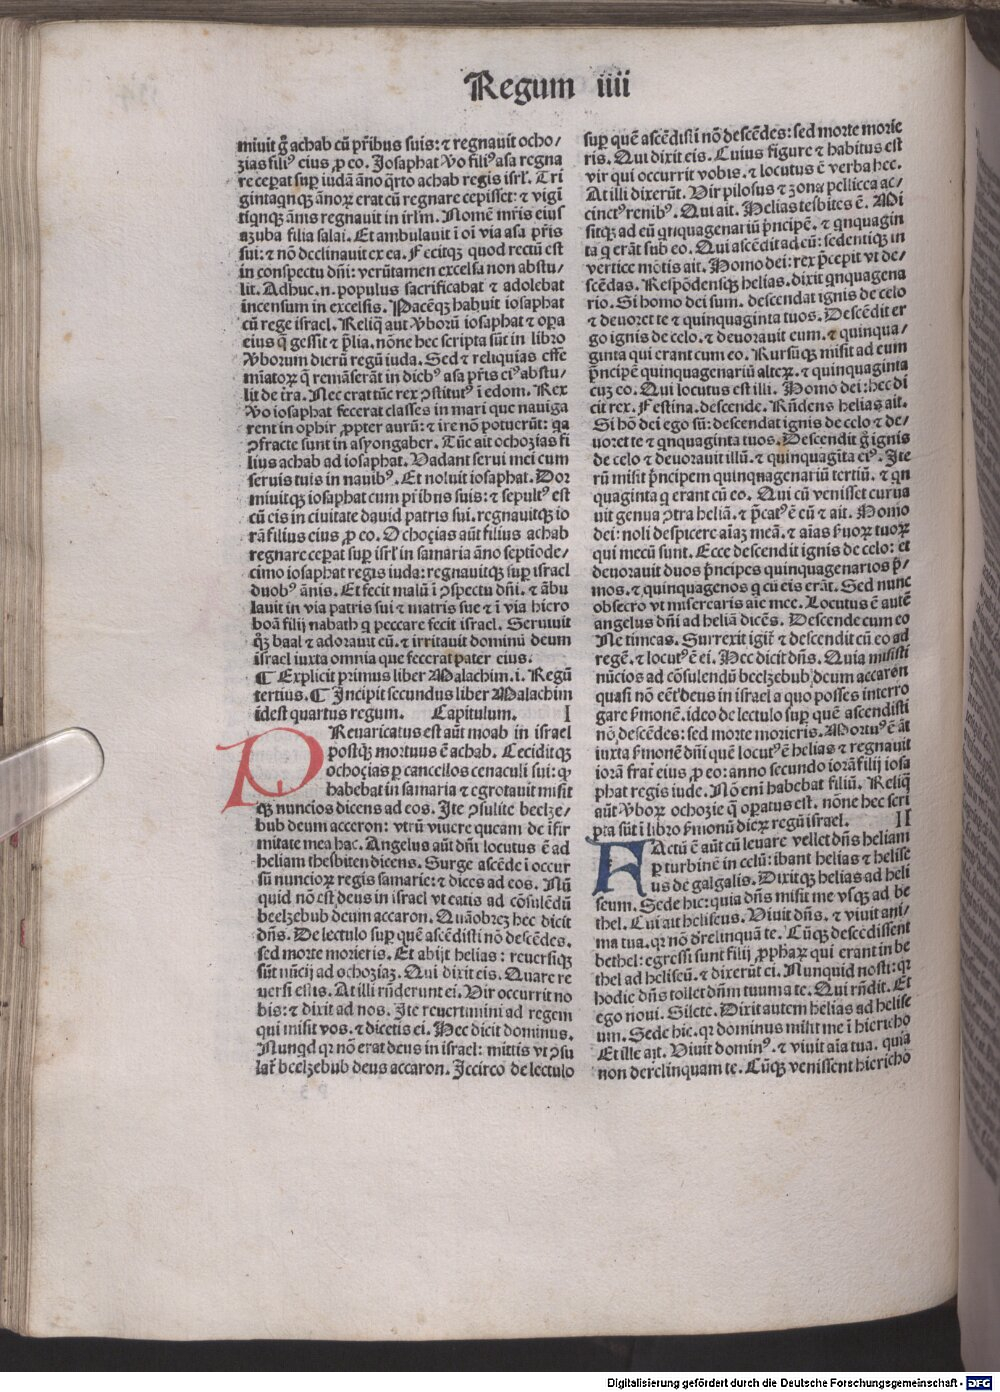 Regum iiii
miuit g̃ achab cū pr̃ibus suis: ⁊ regnauit ocho/
zias filiꝰ eius ꝓ eo. Josaphat ꝟo filiꝰ asa regna
re ceperat suꝑ iudā āno q̈rto achab regis isrl̃. Tri
gintaqnqꝫ ānoꝝ erat cū regnare cepisset: ⁊ vigī
tiqnqꝫ ānis regnauit in irl̃m. Nomē mr̃is eius
azuba filia salai. Et ambulauit ī oī via asa pr̃is
sui: ⁊ nō declinauit ex ea. Fecitqꝫ quod rectū est
in conspectu dn̄i: verūtamen excelsa non abstu/
lit. Adhuc.n. populus sacrificabat ⁊ adolebat
incensum in excelsis. Pacēqꝫ habuit iosaphat
cū rege israel. Reliq̄ aut ꝟborū iosaphat ⁊ oꝑa
eius q̄ gessit ⁊ p̄lia. nōne hec scripta sūt in libro
ꝟborum dierū regū iuda. Sed ⁊ reliquias effe
mīatoꝝ q̄ remāserāt in diebꝰ asa pr̃is eiꝰ abstu/
lit de tr̃a. Nec erat tūc rex ꝯstitutꝰ ī edom. Rex
ꝟo iosaphat fecerat classes in mari que nauiga
rent in ophir ꝓpter aurū: ⁊ ire nō potuerūt: qa
ꝯfracte sunt in asyongaber. Tūc ait ochozias fi
lius achab ad iosaphat. Vadant serui mei cum
seruis tuis in nauibꝰ. Et noluit iosaphat. Dor
miuitqꝫ iosaphat cum pr̃ibus suis: ⁊ sepultꝰ est
cū eis in ciuitate dauid patris sui. regnauitqꝫ io
rā filius eius ꝓ eo. Ochoçias aūt filius achab
regnare ceperat suꝑ isrl̃ in samaria āno septīode/
cimo iosaphat regis iuda: regnauitqꝫ suꝑ israel
duobꝰ ānis. Et fecit malū ī ꝯspectu dn̄i. ⁊ ābu
lauit in via patris sui ⁊ matris sue ⁊ ī via hiero
boā filij nabath q̇ peccare fecit israel. Seruiuit
q̊ꝫ baal ⁊ adorauit eū. ⁊ irritauit dominū deum
israel iuxta omnia que fecerat pater eius.
¶ Explicit primus liber Malachim.i. Regū
tertius. ¶ Incipit secundus liber Malachim
idest quartus regum. Capitulum. I
PReuaricatus est aūt moab in israel
postqꝫ mortuus ē achab. Ceciditqꝫ
ochoçias ꝑ cancellos cenaculi sui: qꝰ
habebat in samaria ⁊ egrotauit misit
qꝫ nuncios dicens ad eos. Ite ꝯsulite beelze/
bub deum acceron: vtrū viuere queam de īfir
mitate mea hac. Angelus aūt dn̄i locutus ē ad
heliam thesbiten dicens. Surge ascēde ī occur
sū nuncioꝝ regis samarie: ⁊ dices ad eos. Nū
quid nō est deus in israel vt eatis ad cōsulēdū
beelzebub deum accaron. Quāobreꝫ hec dicit
dn̄s. De lectulo suꝑ quē ascēdisti nō descēdes.
sed morte morieris. Et abijt helias: reuersiqꝫ
sūt nūcij ad ochoziaꝫ. Qui dixit eis. Quare re
uersi estis. At illi rn̄derunt ei. Vir occurrit no
bis: ⁊ dixit ad nos. Ite reuertimini ad regem
qui misit vos. ⁊ dicetis ei. Hec dicit dominus.
Nunqd qꝛ nō erat deus in israel: mittis vt ꝯsu
lat̃ beelzebub deus accaron. Iccirco de lectulo
suꝑ quē ascēdisti nō descēdes: sed morte morie
ris. Qui dixit eis. Cuius figure ⁊ habitus est
vir qui occurrit vobis. ⁊ locutus ē verba hec.
At illi dixerūt. Vir pilosus ⁊ zona pellicea ac/
cinctꝰ renibꝰ. Qui ait. Helias tesbites ē. Mi
sitqꝫ ad eū qnquagenariū p̄ncipē. ⁊ qnquagin
ta q̇ erāt sub eo. Qui ascēdit ad eū: sedentiqꝫ in
vertice mōtis ait. Homo dei: rex p̄cepit vt de/
scēdas. Respōdensqꝫ helias. dixit qnquagena
rio. Si homo dei sum. descendat ignis de celo
⁊ deuoret te ⁊ quinquaginta tuos. Descēdit er
go ignis de celo. ⁊ deuorauit eum. ⁊ quinqua/
ginta qui erant cum eo. Rursūqꝫ misit ad eum
p̄ncipē quinquagenariū alteꝝ. ⁊ quinquaginta
cuꝫ eo. Qui locutus est illi. Homo dei: hec di
cit rex. Festina. descende. Rn̄dens helias ait.
Si hō dei ego sū: descendat ignis de celo ⁊ de/
uoret te ⁊ qnquaginta tuos. Descendit g̃ ignis
de celo ⁊ deuorauit illū. ⁊ quinquagīta eiꝰ. Ite
rū misit p̄ncipem quinqnagenariū tertiū. ⁊ qn
quaginta q̇ erant cū eo. Qui cū venisset curua
uit genua ꝯtra heliā. ⁊ p̄catꝰ ē eū ⁊ ait. Homo
dei: noli despicere aīaꝫ meā. ⁊ aīas ẜuoꝝ tuoꝝ
qui mecū sunt. Ecce descendit ignis de celo: et
deuorauit duos p̄ncipes quinquagenarios p̄/
mos. ⁊ quinquagenos q̇ cū eis erāt. Sed nunc
obsecro vt miserearis aīe mee. Locutus ē autē
angelus dn̄i ad heliā dicēs. Descende cum eo
Ne timeas. Surrexit igit̃ ⁊ descendit cū eo ad
regē. ⁊ locutꝰ ē ei. Hec dicit dn̄s. Quia misisti
nūcios ad cōsulendū beelzebub deum accaron
quasi nō eēt deus in israel a quo posses interro
gare ẜmonē. ideo de lectulo suꝑ quē ascendisti
nō descēdes: sed morte morieris. Mortuꝰ ē āt
iuxta ẜmonē dn̄i quē locutꝰ ē helias ⁊ regnauit
iorā frat̃ eius ꝓ eo: anno secundo iorā filij iosa
phat regis iude. Nō eni habebat filiū. Reliq̄
aūt ꝟboꝝ ochozie q̄ oꝑatus est. nōne hec scri
pta sūt ī libro ẜmonū dieꝝ regū israel. II
FActū ē aūt cū leuare vellet dn̄s heliam
ꝑ turbinē in celū: ibant helias ⁊ helise
us de galgalis. Dixitqꝫ helias ad heli
seum. Sede hic: quia dn̄s misit me vsqꝫ ad be
thel. Cui ait heliseus. Viuit dn̄s. ⁊ viuit ani/
ma tua. qꝛ nō d̓relinquā te. Cūqꝫ descēdissent
bethel: egressi sunt filij ꝓphaꝝ qui erant in be
thel ad heliseū. ⁊ dixerūt ei. Nunquid nosti: qꝛ
hodie dn̄s tollet dn̄m tuum a te. Qui rn̄dit. Et
ego noui. Silete. Dixit autem helias ad helise
um. Sede hic. qꝛ dominus misit me ī hiericho
Et ille ait. Viuit dominꝰ. ⁊ viuit aīa tua. quia
non derelinquam te. Cūqꝫ venissent hierichō
Digitalisierung gefördert durch die Deutsche Forschungsgemeinschaft - DFG